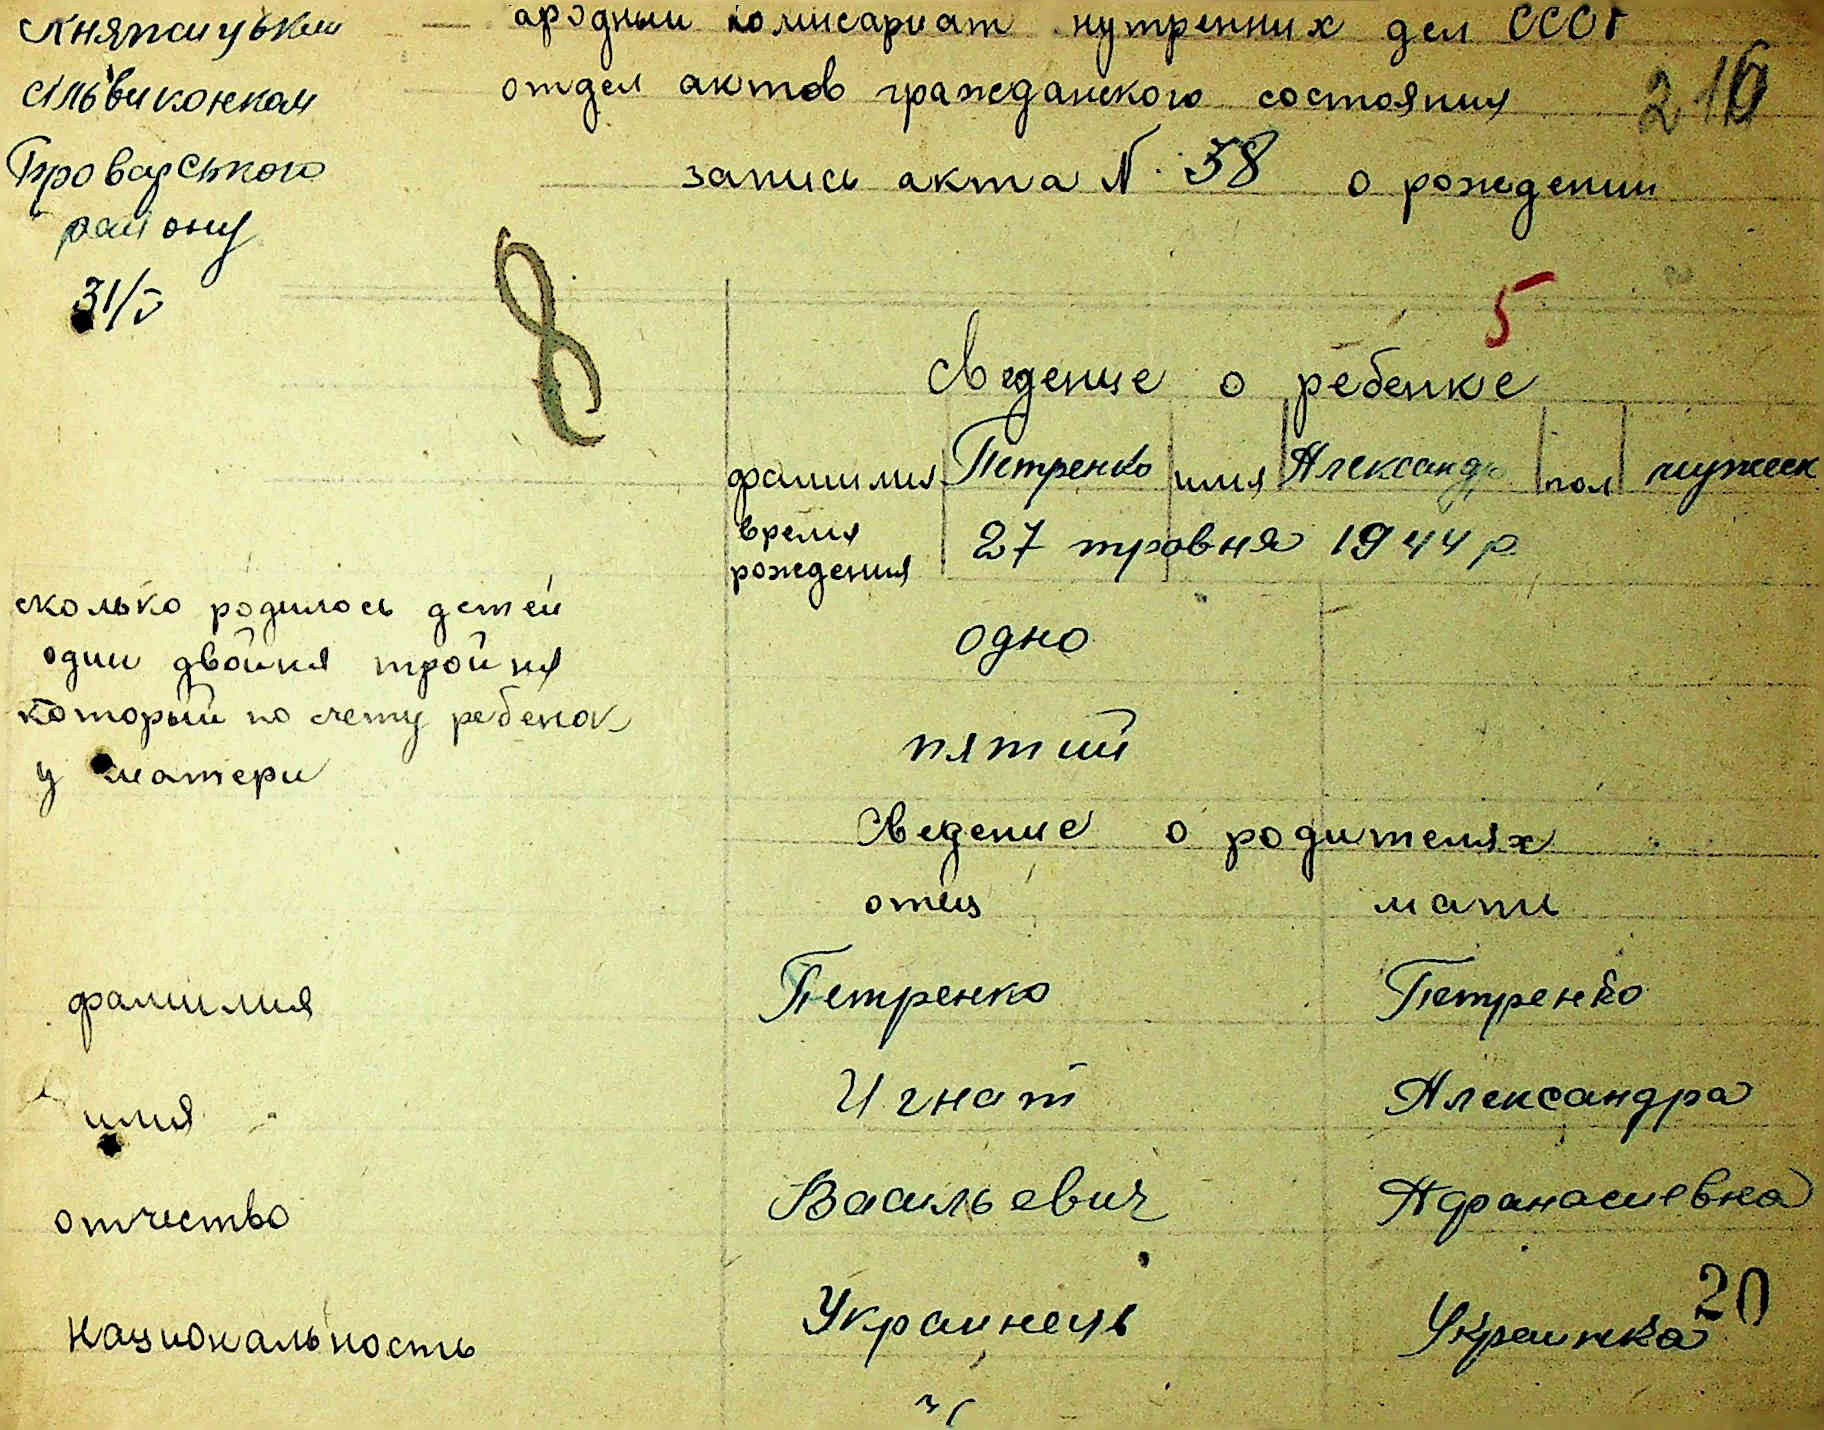 Княжицький
сільвиконком
Броварського
району
31/V
ародный комисариат нутренних дел СССР
отдел актов гражданского состояния
210
запись акта N 38 о рождении
8
5
Сведение о ребенке
фамилия Петренко имя Александр пол мужеск
время рождения 27 травня 1944 р.
сколько родилось детей
один двойня тройня
одно
который по счету ребенок
у матери
пятий
Сведение о родителях
отец мать
фамилия Петренко Петренко
имя Игнат Александра
отчество Васильевич Афанасиевна
20
национальность Украинець Украинка